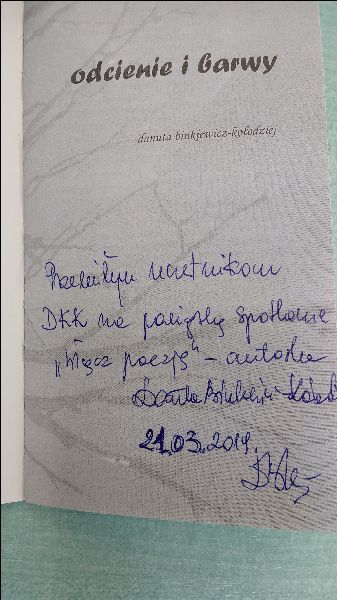 odcienie i barwy
danuta binkiewicz-kołodziej
Przemiłym uczestnikom
DKK na pamiątkę spotkania
„Włącz poezję" - autorka
Danuta Binkiewicz-
21.03.2019.